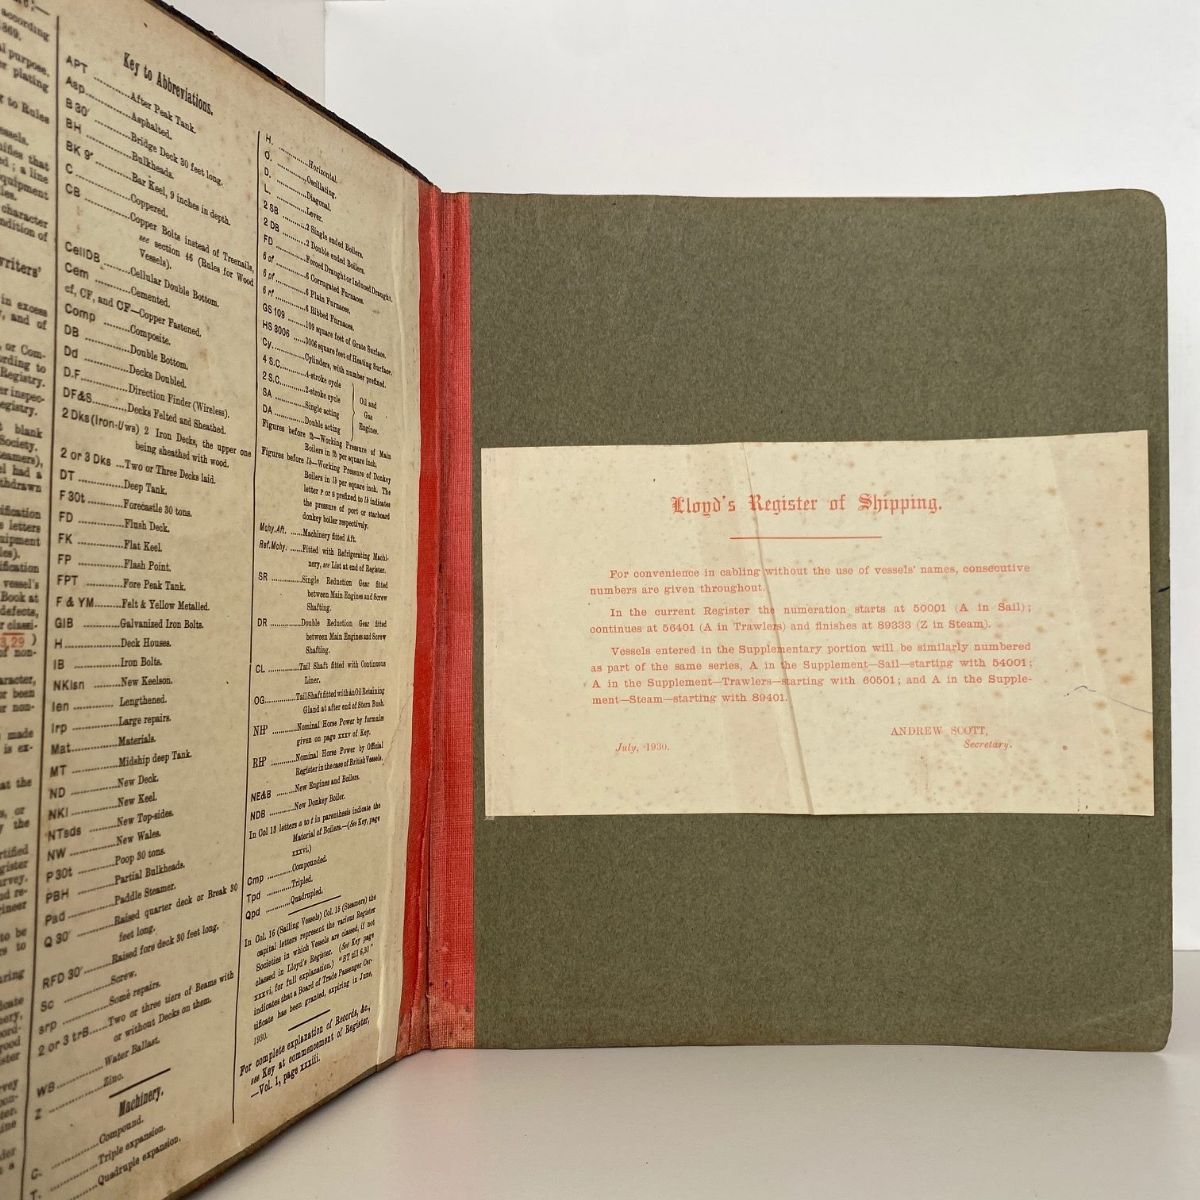 according
1869.
purpose.
plating
to Rules
Key to Abbreviations.
APT ............After Peak Tank.
Asp............Asphalted.
B 30' ............Bridge Deck 30 feet long.
BH ............Bulkheads.
BK 9" ............Bar Keel, 9 inches in depth.
C ............Coppered.
CB ............Copper Bolts instead of Treenails,
see section 46 (Rules for Wood
Vessels).
CellDB ........Cellular Double Bottom.
Cem ............Cemented.
cf, CF, and CF—Copper Fastened.
Comp ........Composite.
DB ............Double Bottom.
Dd ............Decks Doubled.
D.F............Direction Finder (Wireless).
DF&S.........Decks Felted and Sheathed.
2 Dks (Iron-U'ws) 2 Iron Decks, the upper one
being sheathed with wood.
2 or 3 Dks ...Two or Three Decks laid.
DT ............Deep Tank.
F 30t .........Forecastle 30 tons.
FD ............Flush Deck.
FK ............Flat Keel.
FP ............Flash Point.
FPT .........Fore Peak Tank.
F & YM........Felt & Yellow Metalled.
GIB .........Galvanized Iron Bolts.
H............Deck Houses.
IB ............Iron Bolts.
NKlsn .........New Keelson.
len ............ Lengthened.
lrp ............Large repairs.
Mat............Materials.
MT ............Midship deep Tank.
ND ............New Deck.
NKl............New Keel.
NTsds .........New Top-sides.
NW ............New Wales.
P 30t .........Poop 30 tons.
PBH .........Partial Bulkheads.
Pad ............Paddle Steamer.
Q 30' .........Raised quarter deck or Break 30
feet long.
RFD 30'.......Raised fore deck 30 feet long.
Sc ............Screw.
srp ............Some repairs.
2 or 3 trB......Two or three tiers of Beams with
or without Decks on them.
WB............Water Ballast.
Z ............Zinc.
Machinery.
C. ............Compound.
T. ............Triple expansion.
Quadruple expansion.
H. .........Horizontal.
O. .........Oscillating.
D. .........Diagonal.
L. .........Lever.
2 SB .........2 Single ended Boilers.
2 DB .........2 Double ended Boilers.
FD .........Forced Draught or Induced Draught.
6 cf .........6 Corrugated Furnaces.
6 pf .........6 Plain Furnaces.
6 rf .........6 Ribbed Furnaces.
GS 109 ......109 square feet of Grate Surface.
HS 3006 ......3006 square feet of Heating Surface.
Cy............Cylinders, with number prefixed.
4 S.C.........4-stroke cycle
2 S.C.........2-stroke cycle
SA .........Single acting
DA .........Double acting
Oil and
Gas
Engines.
Figures before lb—Working Pressure of Main
Boilers in lb per square inch.
Figures before lb—Working Pressure of Donkey
Boilers in lb per square inch. The
letter P or S prefixed to lb indicates
the pressure of port or starboard
donkey boiler respectively.
Mchy.Aft. ......Machinery fitted Aft.
Ref.Mchy. ......Fitted with Refrigerating Machi-
nery, see List at end of Register.
SR .........Single Reduction Gear fitted
between Main Engines and Screw
Shafting.
DR .........Double Reduction Gear fitted
between Main Engines and Screw
Shafting.
CL .........Tail Shaft fitted with Continuous
Liner.
OG.........Tail Shaft fitted with An Oil Retaining
Gland at after end of Stern Bush.
NHP .........Nominal Horse Power by formulæ
given on page xxxv of Key.
RHP .........Nominal Horse Power by Official
Register in the case of British Vessels.
NE&B .........New Engines and Boilers.
NDB .........New Donkey Boiler.
In Col 13 letters a to t in parenthesis indicate the
Material of Boilers.—(See Key, page
xxxvi.)
Cmp .........Compounded.
Tpd .........Tripled.
Qpd .........Quadrupled.
In Col. 16 (Sailing Vessels) Col. 16 (Steamers) the
capital letters represent the various Register
Societies in which Vessels are classed, if not
classed in Lloyd's Register. (See Key page
xxxvi, for full explanation.) "BT till 6,30"
indicates that a Board of Trade Passenger Cer-
tificate has been granted, expiring in June,
1930.
For complete explanation of Records, &c.,
see Key at commencement of Register,
—Vol. I, page xxxiii.
Lloyd's Register of Shipping.
For convenience in cabling without the use of vessels' names, consecutive
numbers are given throughout.
In the current Register the numeration starts at 50001 (A in Sail);
continues at 56401 (A in Trawlers) and finishes at 89333 (Z in Steam).
Vessels entered in the Supplementary portion will be similarly numbered
as part of the same series, A in the Supplement—Sail—starting with 54001;
A in the Supplement—Trawlers—starting with 60501; and A in the Supple-
ment—Steam—starting with 89401.
ANDREW SCOTT,
July, 1930.
Secretary.